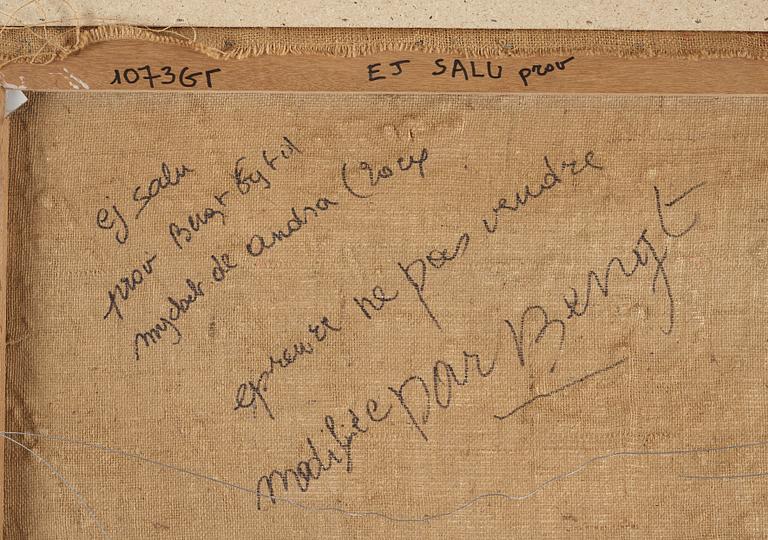 1073GT EJ SALU prov
ej salu
prov Bengt
de andra
epreuve ne pas vendre
modifiée par Bengt